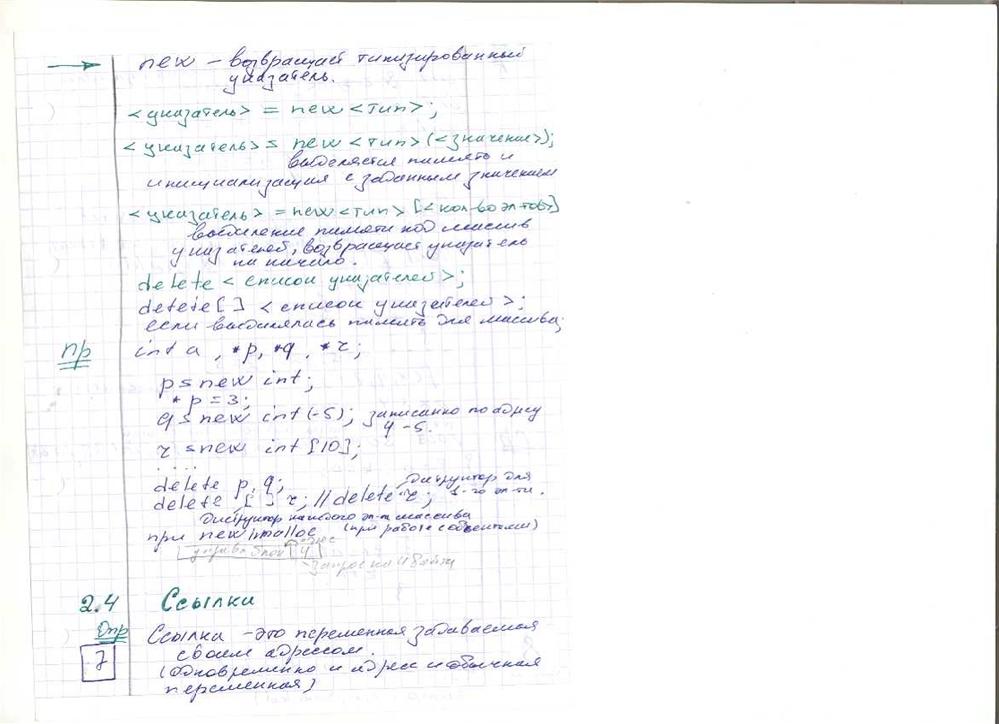 new – возвращает типизированный
указатель.
<указатель> = new <тип>;
<указатель> = new <тип>(<значение>);
выделяется память и
инициализация с заданным значением
<указатель> = new <тип> [<кол-во эл-тов>]
выделение памяти под массив
указателей, возвращает указатель
на начало.
delete <список указателей>;
delete[] <список указателей>;
если выделялась память для массива;
пр int a, *p, *q, *r;
p = new int;
*p = 3;
q = new int(-5); записанно по адресу
q -5.
r = new int[10];
....
delete p, q;
диструктор для
delete [] r; // delete r; 1-го эл-та.
диструктор каждого эл-та массива
(при работе с объектами)
при new/malloc
4
запрос на 4 байта
2.4 Ссылки
Опр Ссылка – это переменная задаваемая
7 своим адрессом.
(одновременно и адресс и обычная
переменная)